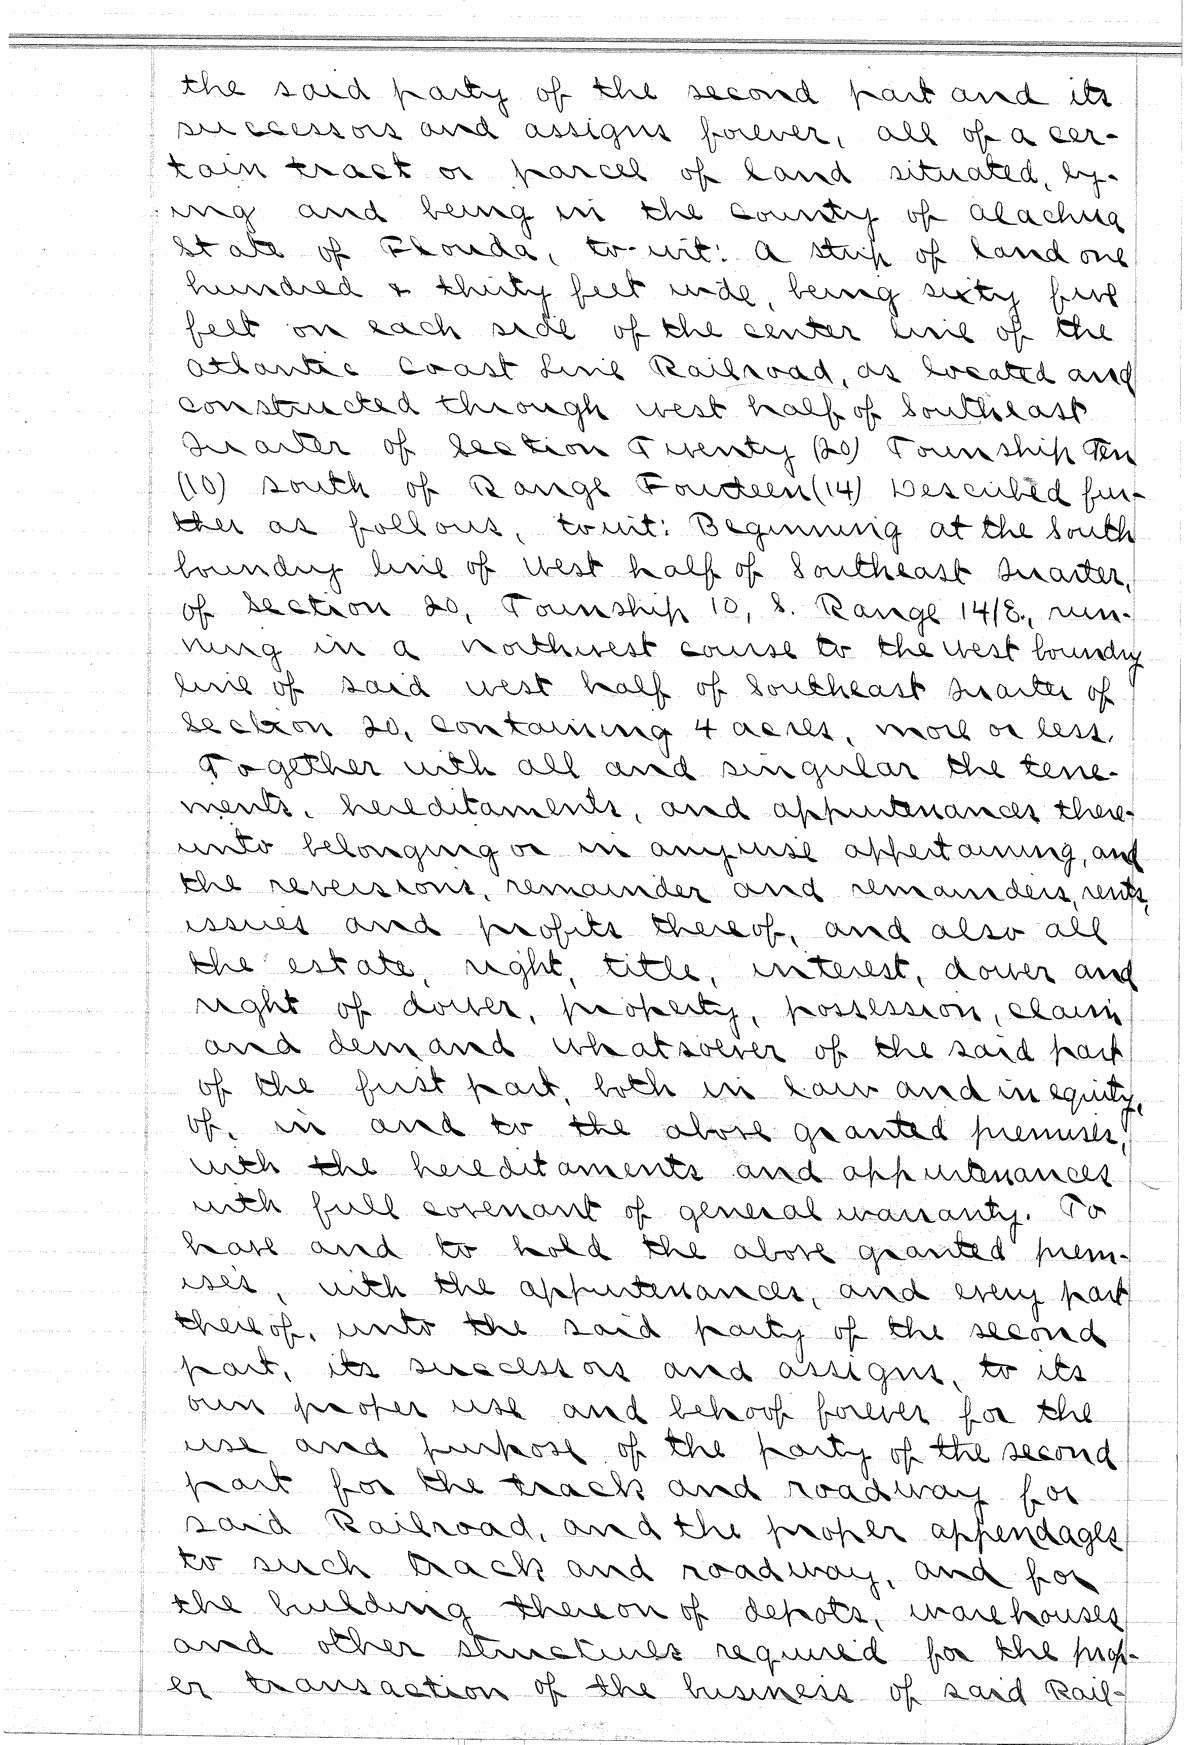 the said party of the second part and its
successors and assigns forever, all of a cer-
tain tract or parcel of land situated, ly-
ing and being in the County of Alachua
State of Florida, to-wit: A strip of land one
hundred & thirty feet wide, being sixty five
feet on each side of the center line of the
Atlantic Coast Line Railroad, as located and
constructed through west half of Southeast
Quarter of Section Twenty (20) Township Ten
(10) South of Range Fourteen (14) Described fur-
ther as follows, towit: Beginning at the South
boundry line of West half of Southeast Quarter,
of Section 20, Township 10, S. Range 14/E., run-
ning in a northwest course to the West boundry
line of said west half of Southeast Quarter of
Section 20, containing 4 acres, more or less.
Together with all and singular the tene-
ments, hereditaments, and appurtenances there-
unto belonging or in anywise appertaining, and
the reversions, remainder and remainders, rents,
issues and profits thereof, and also all
the estate, right, title, interest, dower and
right of dower, property, possession, claim
and demand whatsoever of the said part
of the first part, both in law and in equity,
of, in and to the above granted premises,
with the hereditaments and appurtenances
with full covenant of general warranty. To
have and to hold the above granted prem-
ises, with the appurtenances, and every part
thereof, unto the said party of the second
part, its successors and assigns, to its
own proper use and behoof forever for the
use and purpose of the party of the second
part for the track and roadway for
said Railroad, and the proper appendages
to such track and roadway, and for
the building thereon of depots, warehouses
and other structures required for the prop-
er transaction of the business of said Rail-